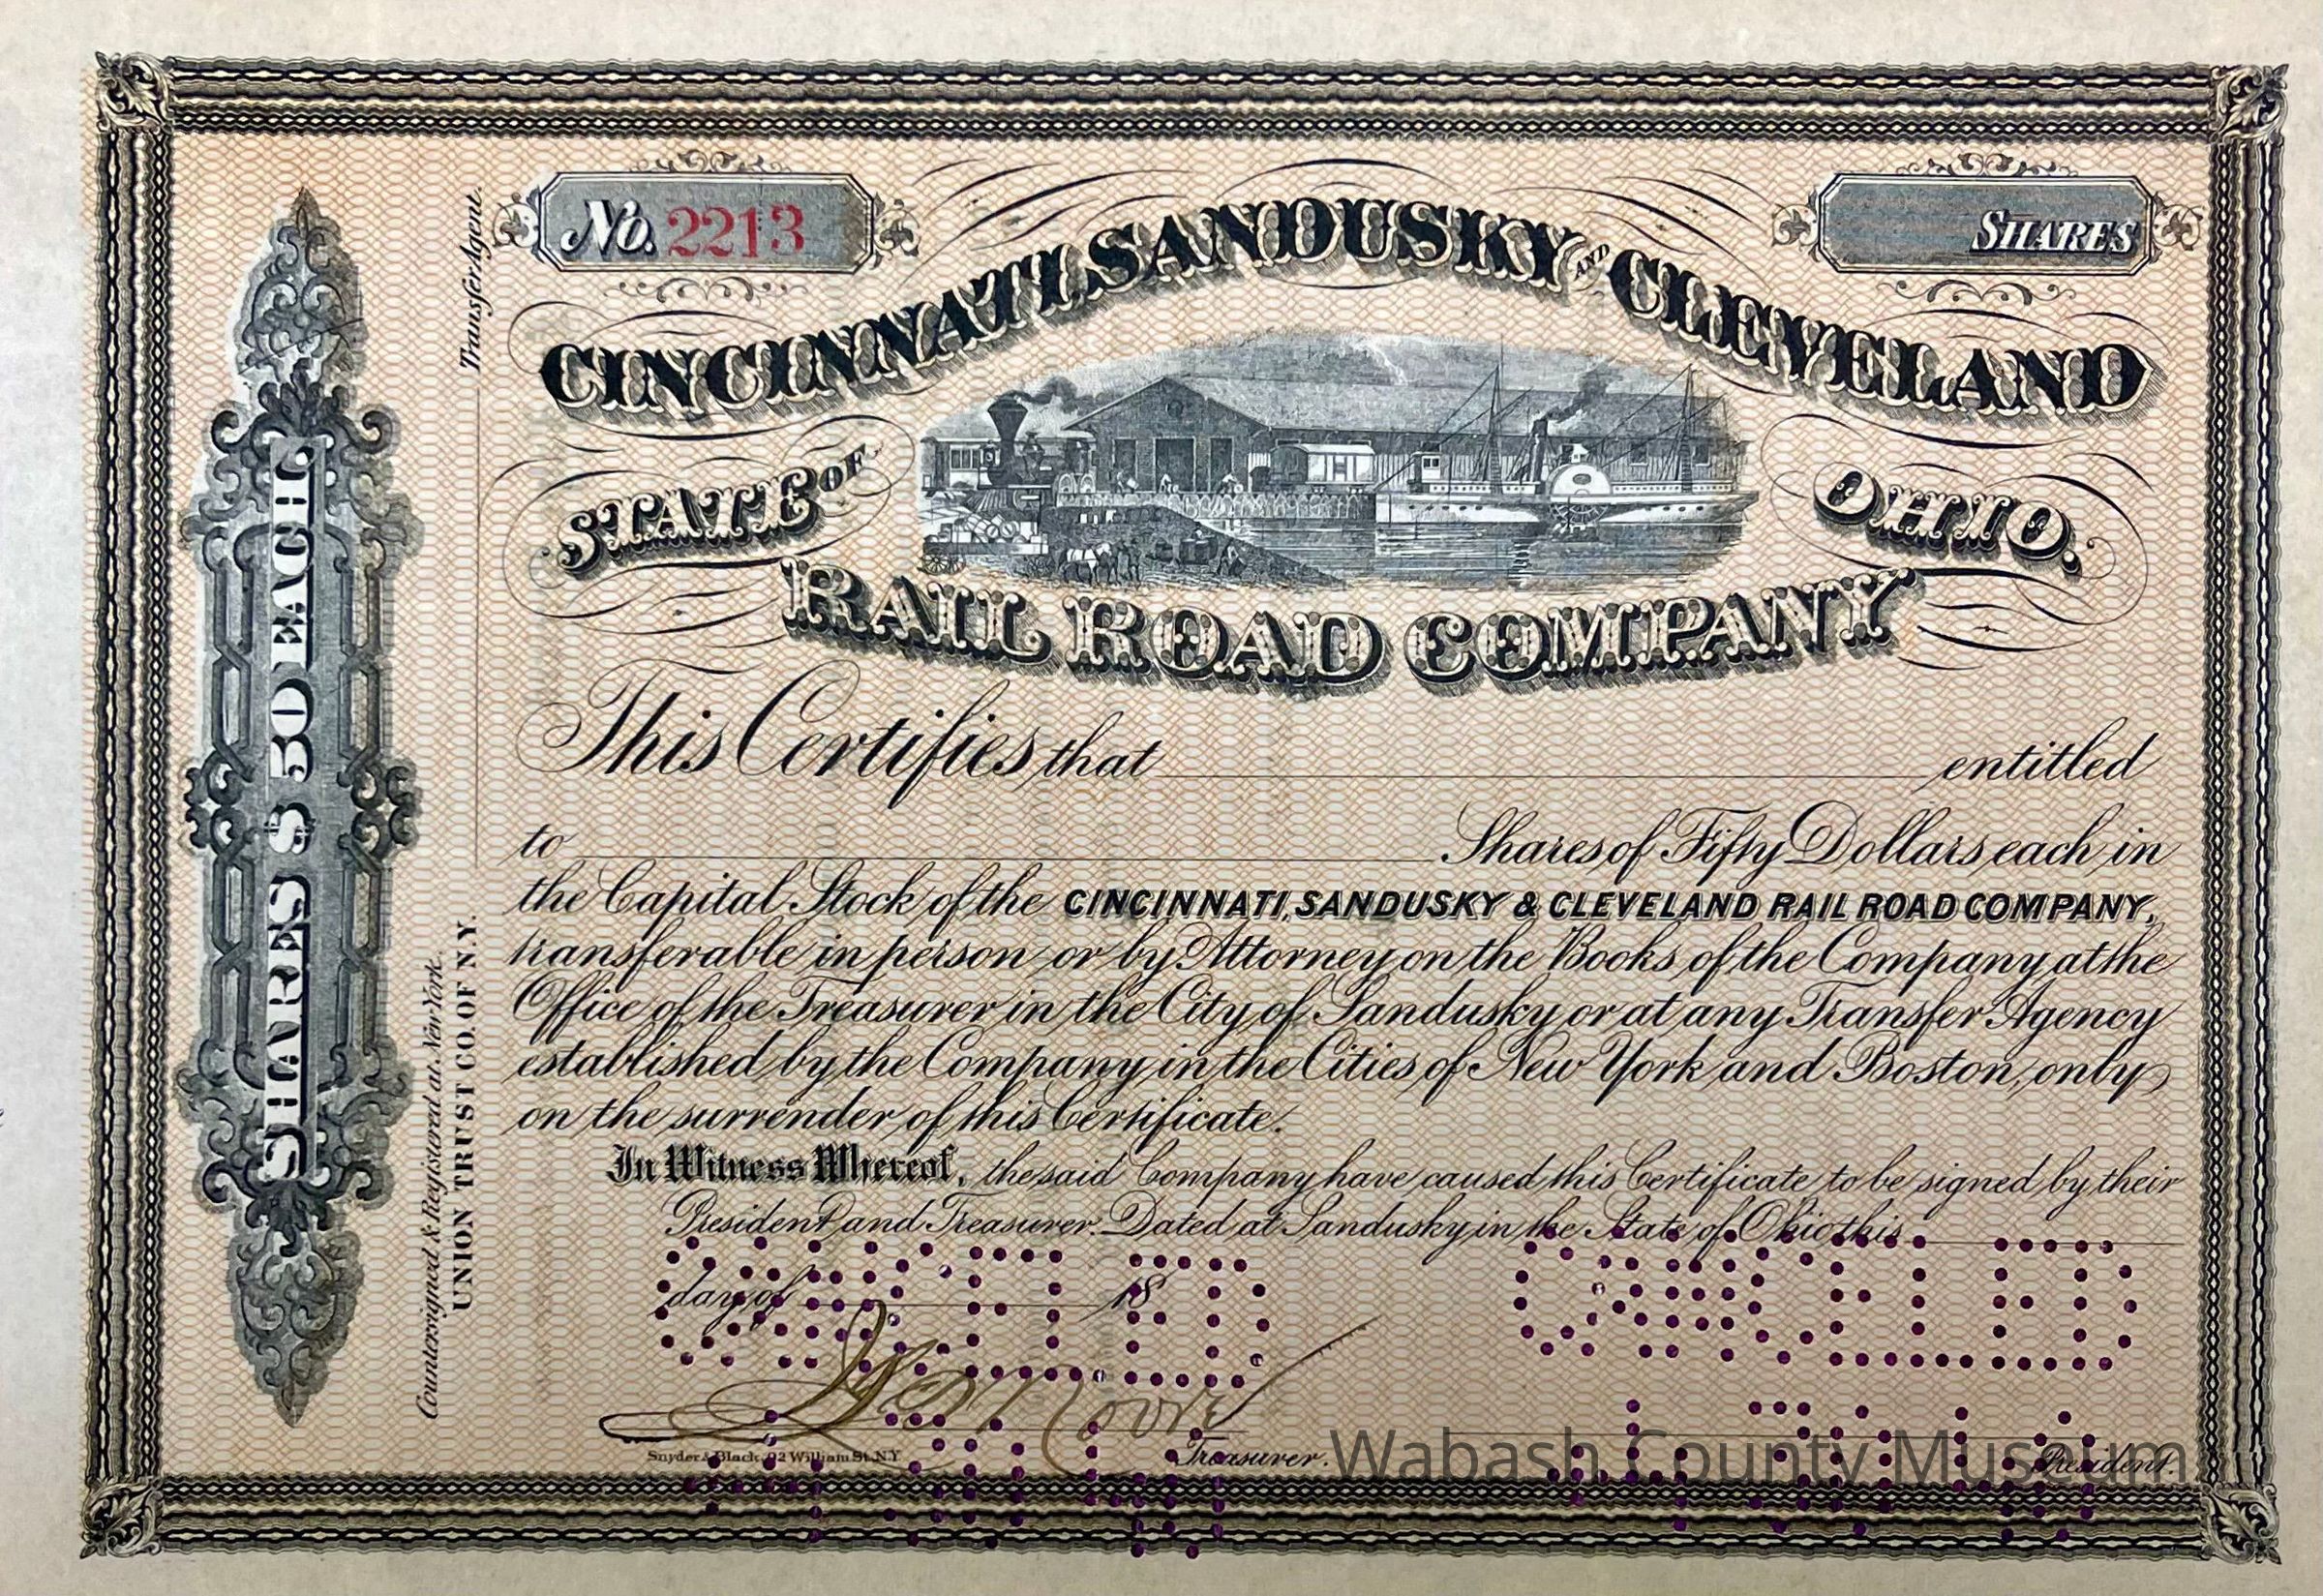 No. 2213
SHARES
CINCINNATI, SANDUSKY AND CLEVELAND
STATE OF OHIO.
RAIL ROAD COMPANY
This Certifies that entitled
to Shares of Fifty Dollars each in
the Capital Stock of the CINCINNATI, SANDUSKY & CLEVELAND RAIL ROAD COMPANY,
transferable in person or by Attorney on the Books of the Company at the
Office of the Treasurer in the City of Sandusky or at any Transfer Agency
established by the Company in the Cities of New York and Boston, only
on the surrender of this Certificate.
In Witness Whereof, the said Company have caused this Certificate to be signed by their
President and Treasurer. Dated at Sandusky in the State of Ohio this
day of 18
CANCELLED
CANCELLED
Moore
Snyder & Black, 92 William St. N.Y.
Treasurer.
President.
SHARES $50 EACH
Countersigned & Registered at New York.
UNION TRUST CO. OF N.Y.
Transfer Agent.
Wabash County Museum